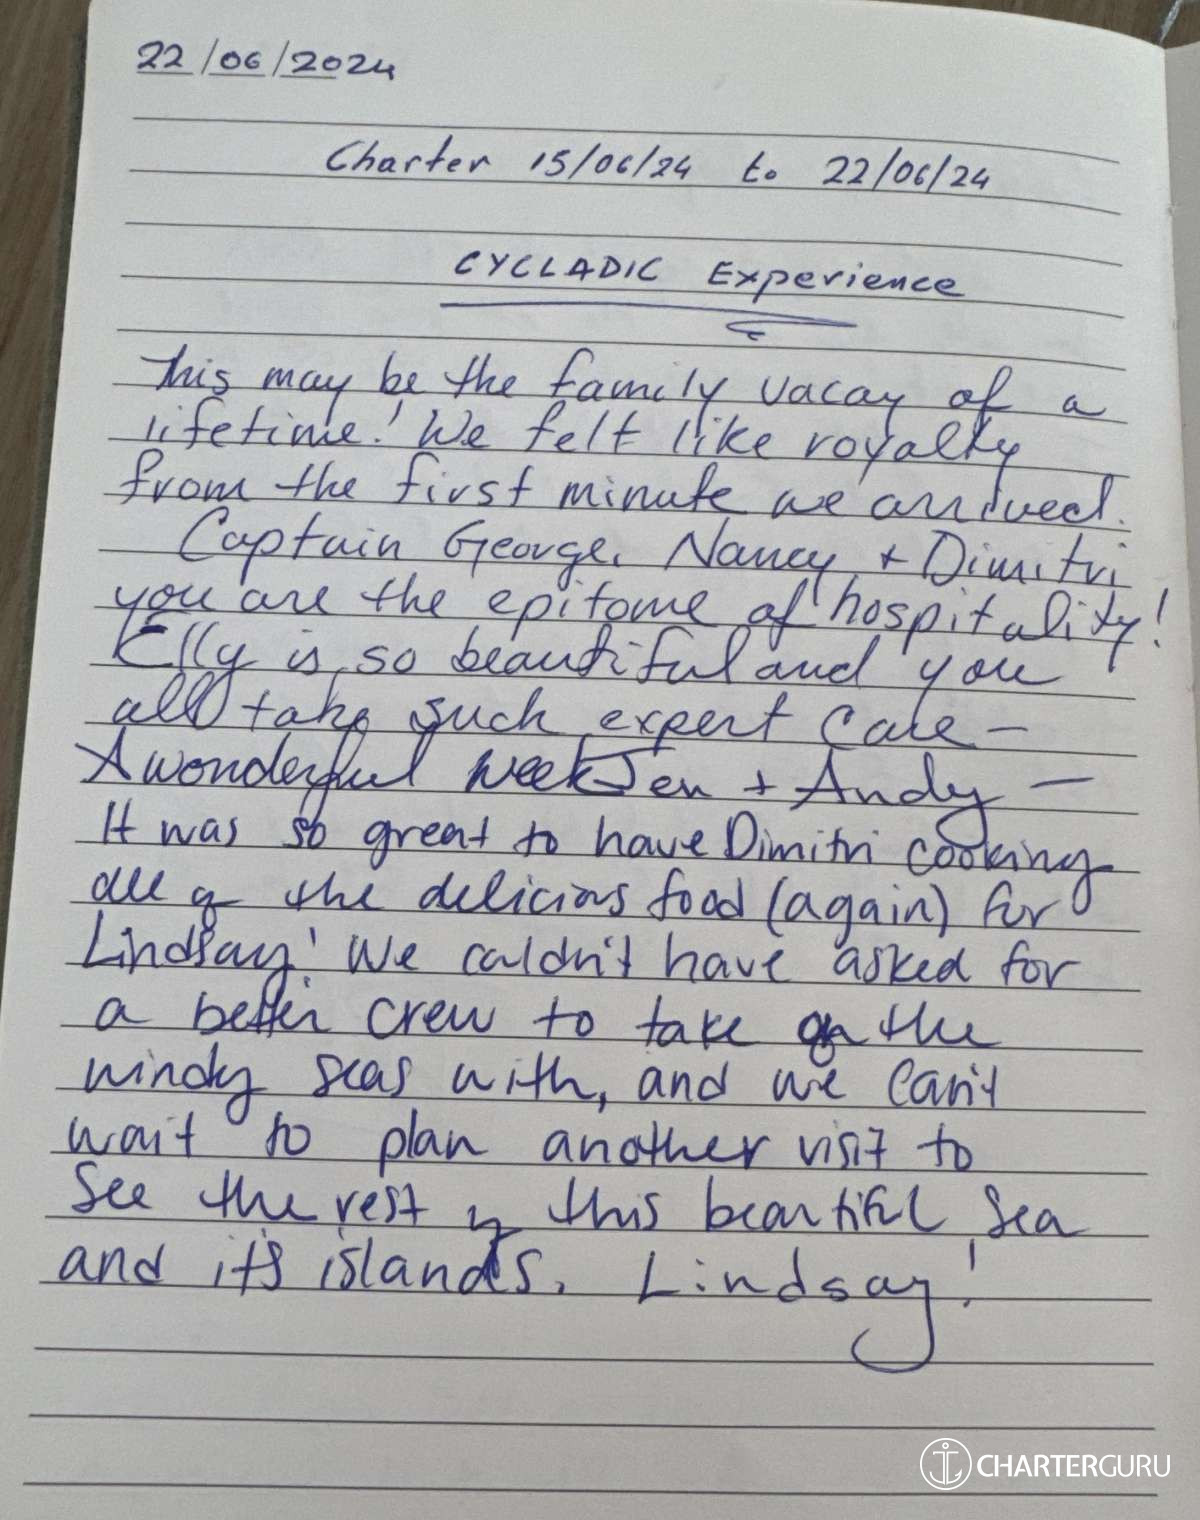 22/06/2024
Charter 15/06/24 to 22/06/24
CYCLADIC Experience
This may be the family vacay of a
lifetime! We felt like royalty
from the first minute we arrived.
Captain George, Nancy + Dimitri
you are the epitome of hospitality!
Elly is so beautiful and you
all take such expert care –
A wonderful week Jen + Andy –
It was so great to have Dimitri cooking
all of the delicious food (again) for
Lindsay! We couldn't have asked for
a better crew to take on the
windy seas with, and we can't
wait to plan another visit to
See the rest of this beautiful Sea
and it's islands. Lindsay!
CHARTERGURU